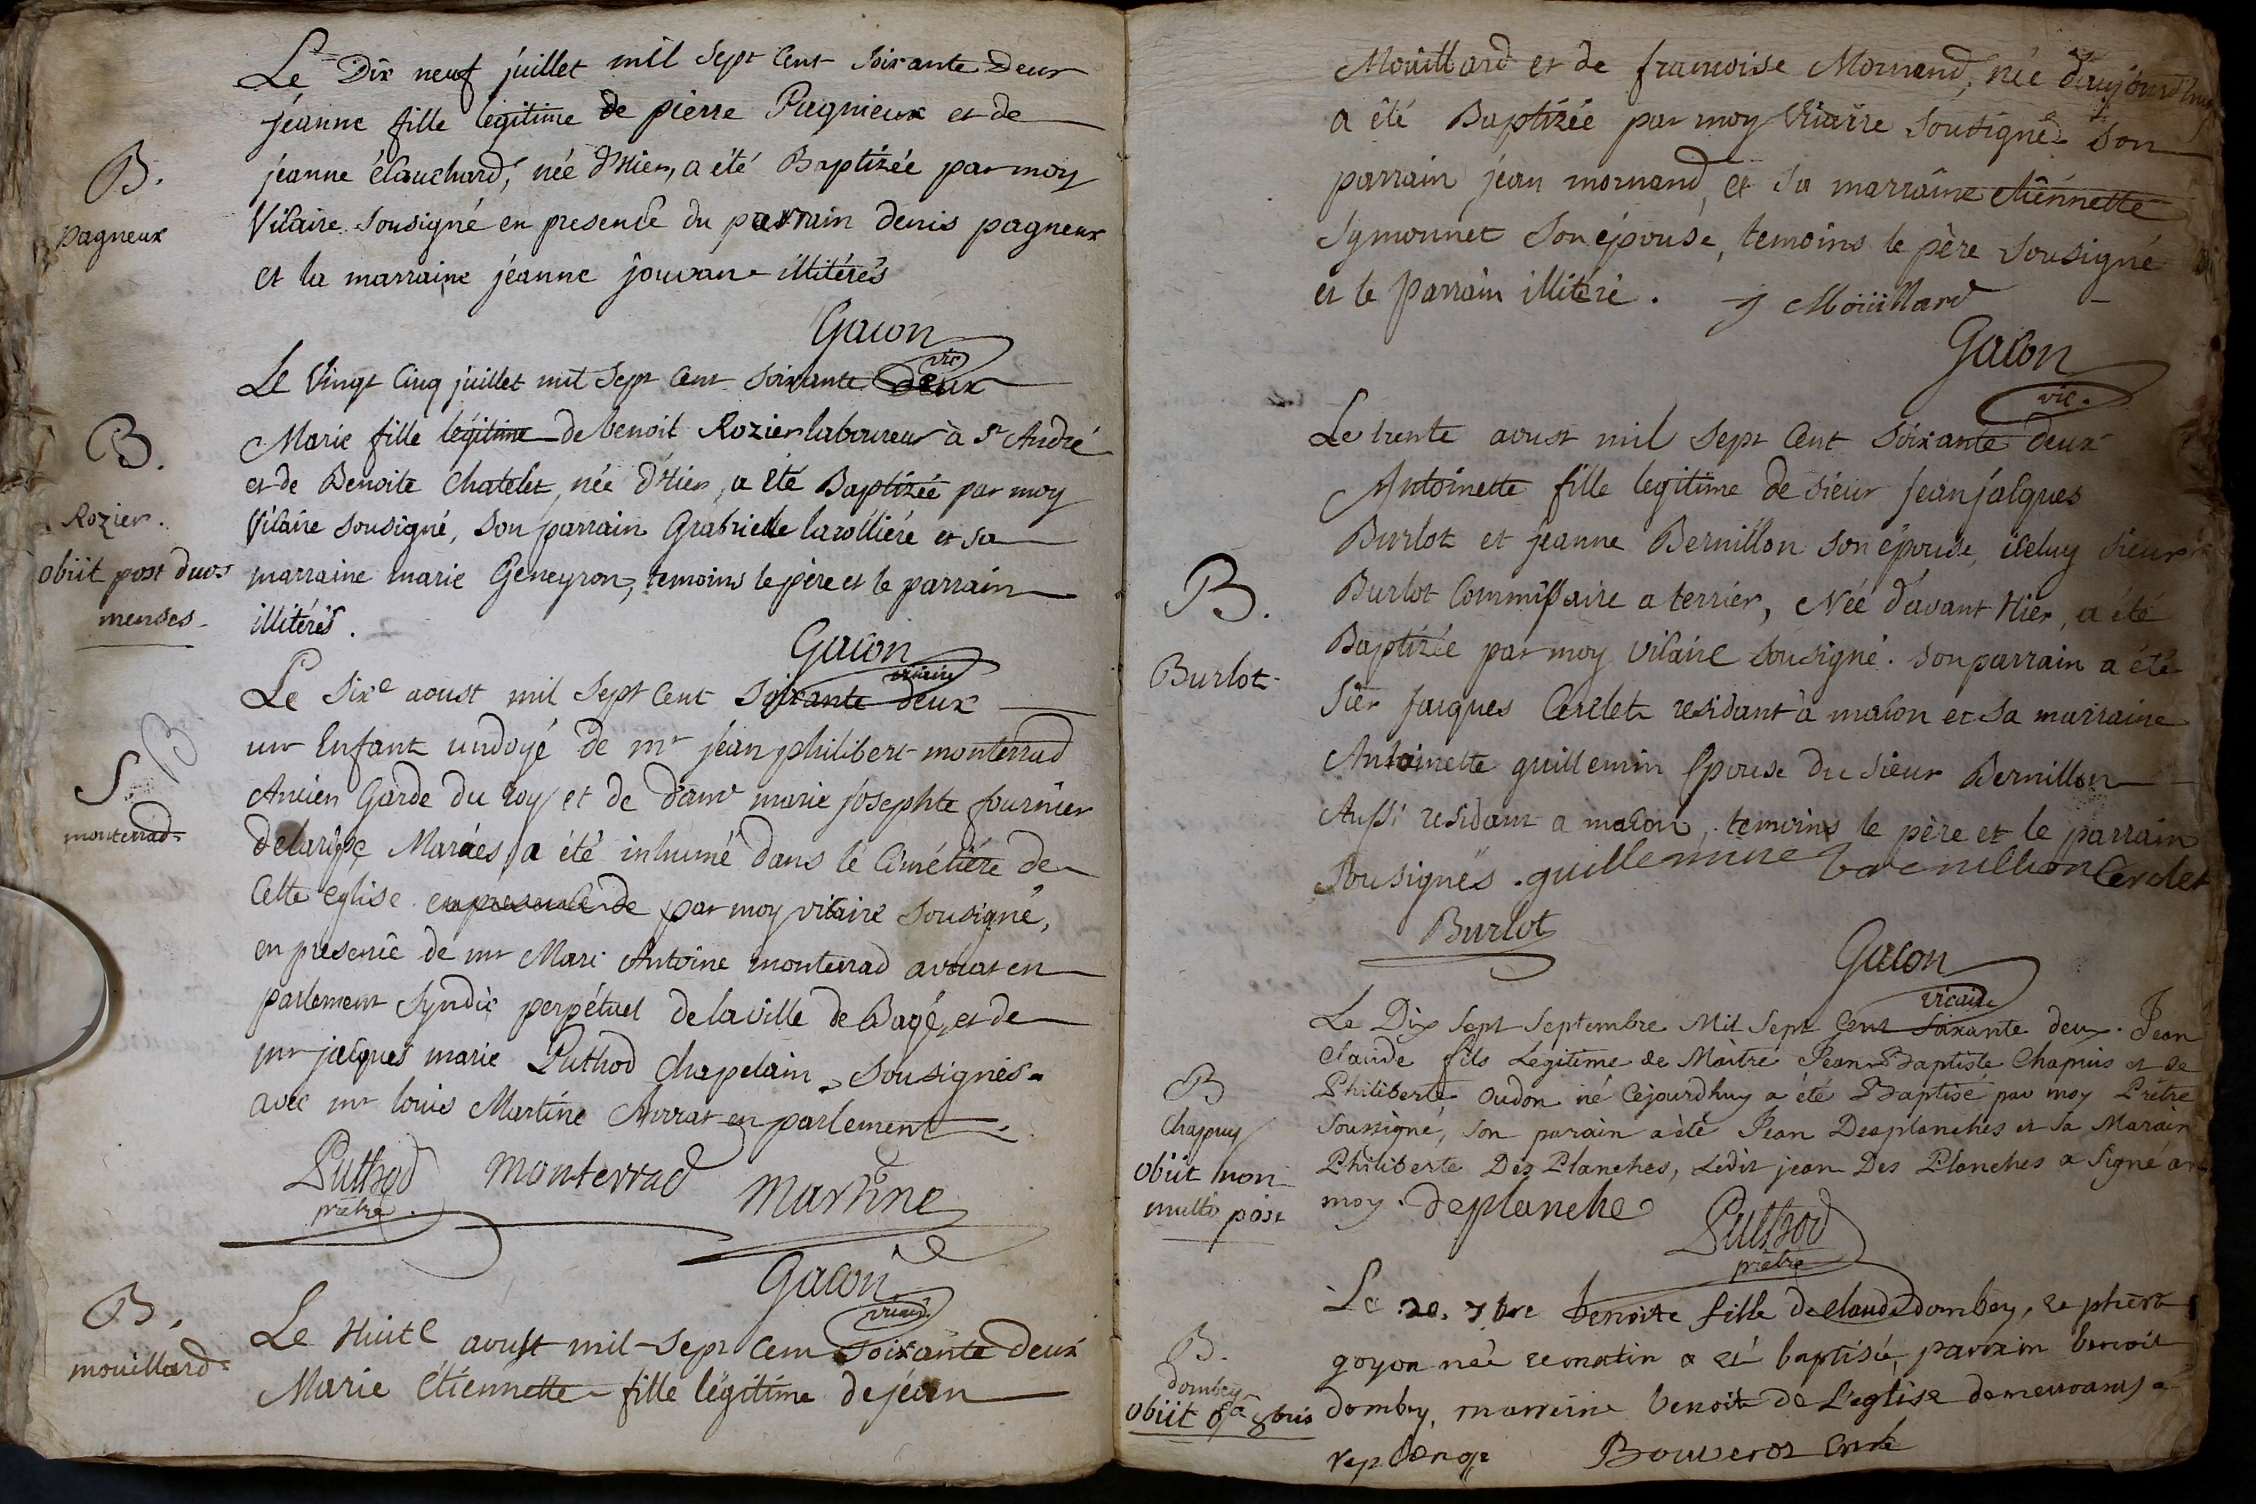 Le Dix neuf juillet mil Sept Cent Soixante Deux
jéanne fille legitime de pierre Pagnieux et de
B.
jéanne éclauchard, née d'Hier, a été Baptizée par moy
pagneux
Vicaire Sousigné en presence du parrain denis pagneux
et la marraine jéanne jouvan illitérés
Gacon
vic
Le Vingt Cinq juillet mil Sept Cent Soixante deux
B.
Marie fille légitime de benoit Rozier laboureur à St André
et de Benoite Chatelet, née d'Hier, a été Baptizée par moy
Rozier.
Vicaire sousigné, Son parrain Grabrielle larolliére et sa
obiit post duos
menses.
marraine marie Géneyron, temoins le père et le parrain
illitérés.
Gacon
vicaire
Le Sixe aoust mil Sept Cent Soixante deux
S. B
un Enfant undoyé de mr jéan philibert monterrad
Ancien Garde du Roy et de dame marie josephte fournier
monterrad
delarippe Mariés, a été inhumé dans le Cimétiére de
Cette église en presence de par moy vicaire sousigné,
en presence de mr Marc Antoine monterrad avocat en
parlement Syndic perpétuel de la ville de Bagé, et de
mr jacques marie Puthod chapelain, Sousignés
avec mr louis Martine Avocat en parlement
Puthod
prêtre.
Monterrad
Martine
Gacon
vicaire
B.
mouillard
Le Huite aoust mil Sept Cent Soixante deux
Marie étiennette fille légitime de jéan
Moüillard et de francoise Mornand, née d'aujourdhuy
a été Baptizée par moy Vicaire Sousigné Son
parrain jéan mornand, et Sa marraine étiennette
Symonnet Son épouse, temoins le père Sousigné
et le Parrain illitéré.
j Moüillard
Gacon
vic.
Le trente aoust mil Sept Cent Soixante deux
Antoinette fille legitime de Sieur jean jacques
B.
Burlot
Burlot et jeanne Bernillon son épouse, iceluy Sieur
Burlot Commissaire a terrier, Née d'avant Hier, a été
Baptizée par moy vicaire Sousigné. Son parrain a été
Sier jacques Cerclet residant à macon et Sa marraine
Antoinette guillemin Epouse du Sieur Bernillon
Aussi residant a macon, temoins le père et le parrain
Sousignés. guillemine bernillion Cerclet
Burlot
Gacon
vicaire
Le Dix Sept Septembre Mil Sept Cent Soixante deux. Jean
Claude fils Legitime de Maitre Jean Baptiste Chapuis et de
B
Chapuy
obiit non
multo post
Philiberte Oudon né Cejourdhuy a été Baptisé par moy Prêtre
Soussigné, Son parain a été Jean Desplanches et Sa Marain
Philiberte Des Planches, Ledit jean Des Planches a Signé avec
moy. deplanche
Puthod
prêtre
Le 20. 7bre benoite fille de claude dombey, et phierte
B.
dombey
goyon née ce matin a eté baptisé, parrain benoit
obiit 8a 8bris
dombey, marreine benoite de L'eglise demeurants a
replonge
Bouveros Curé